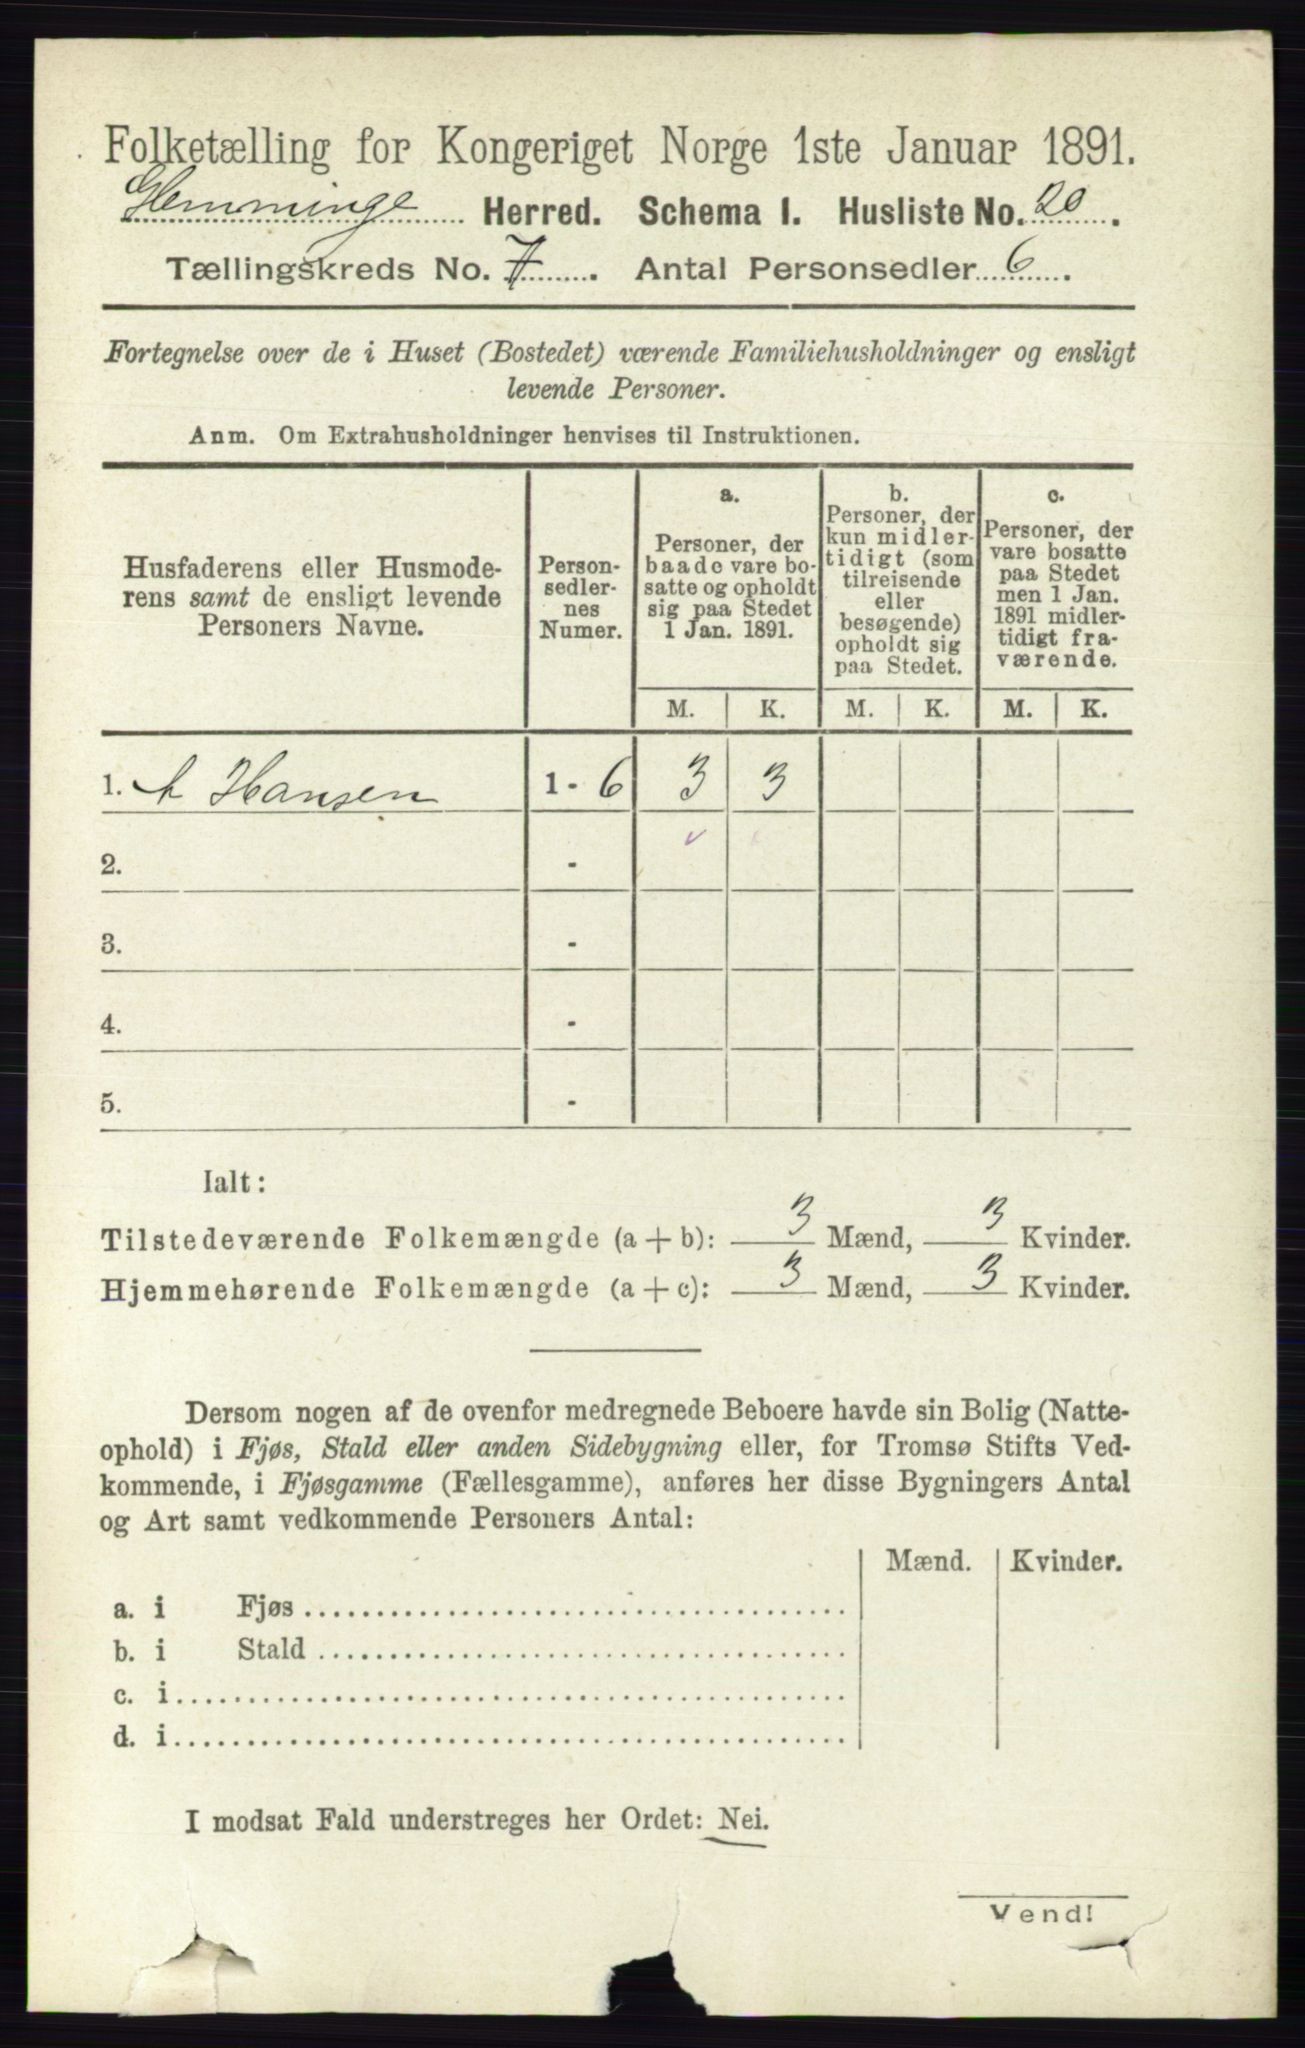 Folketælling for Kongeriget Norge 1ste Januar 1891.
Glemminge Herred. Schema 1. Husliste No. 20.
Tællingskreds No. 7. Antal Personsedler 6.
Fortegnelse over de i Huset (Bostedet) værende Familiehusholdninger og ensligt
levende Personer.
Anm. Om Extrahusholdninger henvises til Instruktionen.
Husfaderens eller Husmode-
rens samt de ensligt levende
Personers Navne.
Person-
sedler-
nes
Numer.
a.
Personer, der
baade vare bo-
satte og opholdt
sig paa Stedet
1 Jan. 1891.
b.
Personer, der
kun midler-
tidigt (som
tilreisende
eller
besøgende)
opholdt sig
paa Stedet.
c.
Personer, der
vare bosatte
paa Stedet
men 1 Jan.
1891 midler-
tidigt fra-
værende.
M. K. M. K. M. K.
1. A Hansen 1 - 6 3 3
2. -
3. -
4. -
5. -
Ialt:
Tilstedeværende Folkemængde (a + b): 3 Mænd, 3 Kvinder.
Hjemmehørende Folkemængde (a + c): 3 Mænd, 3 Kvinder.
Dersom nogen af de ovenfor medregnede Beboere havde sin Bolig (Natte-
ophold) i Fjøs, Stald eller anden Sidebygning eller, for Tromsø Stifts Ved-
kommende, i Fjøsgamme (Fællesgamme), anføres her disse Bygningers Antal
og Art samt vedkommende Personers Antal:
Mænd. Kvinder.
a. i Fjøs
b. i Stald
c. i
d. i
I modsat Fald understreges her Ordet: Nei.
Vend!